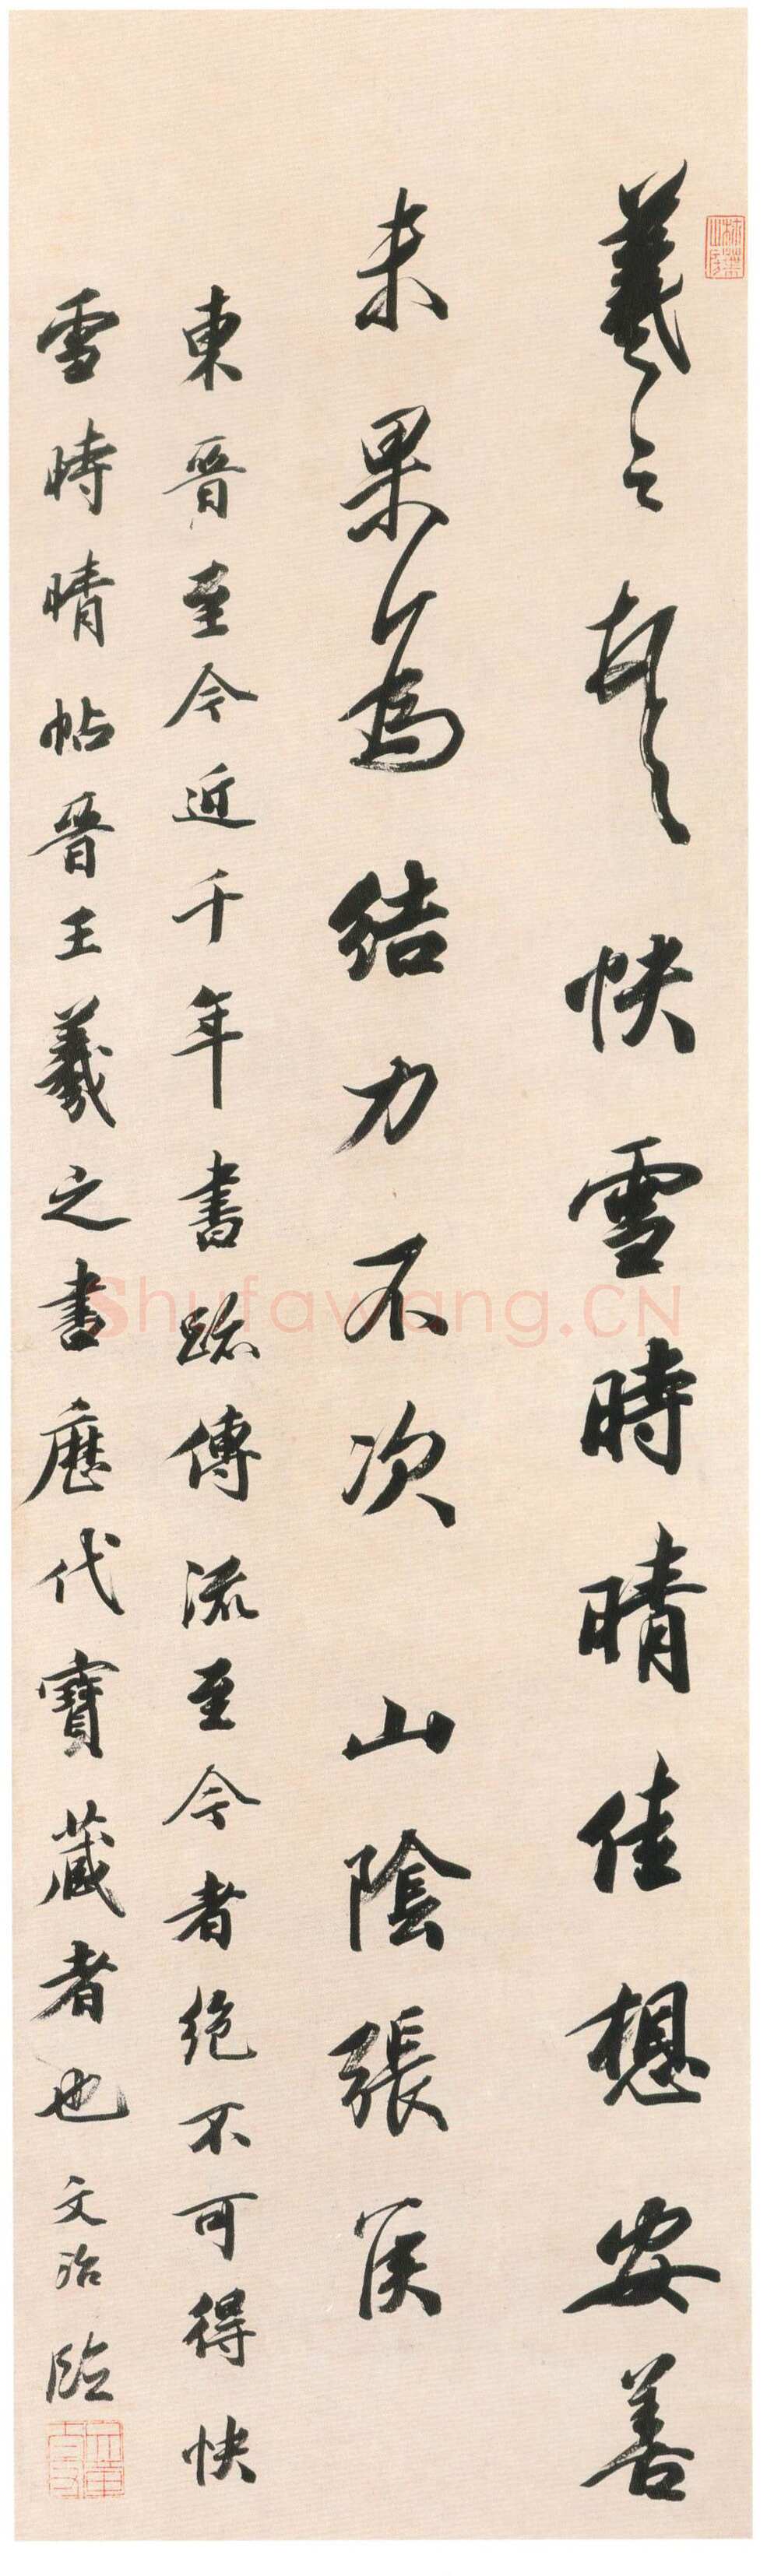 羲之頓首快雪時晴佳想安善
未果為結力不次　山陰張侯
東晉至今近千年書跡傳流至今者絶不可得快
雪時晴帖晉王羲之書歷代寶藏者也文治臨
Shufawang.CN